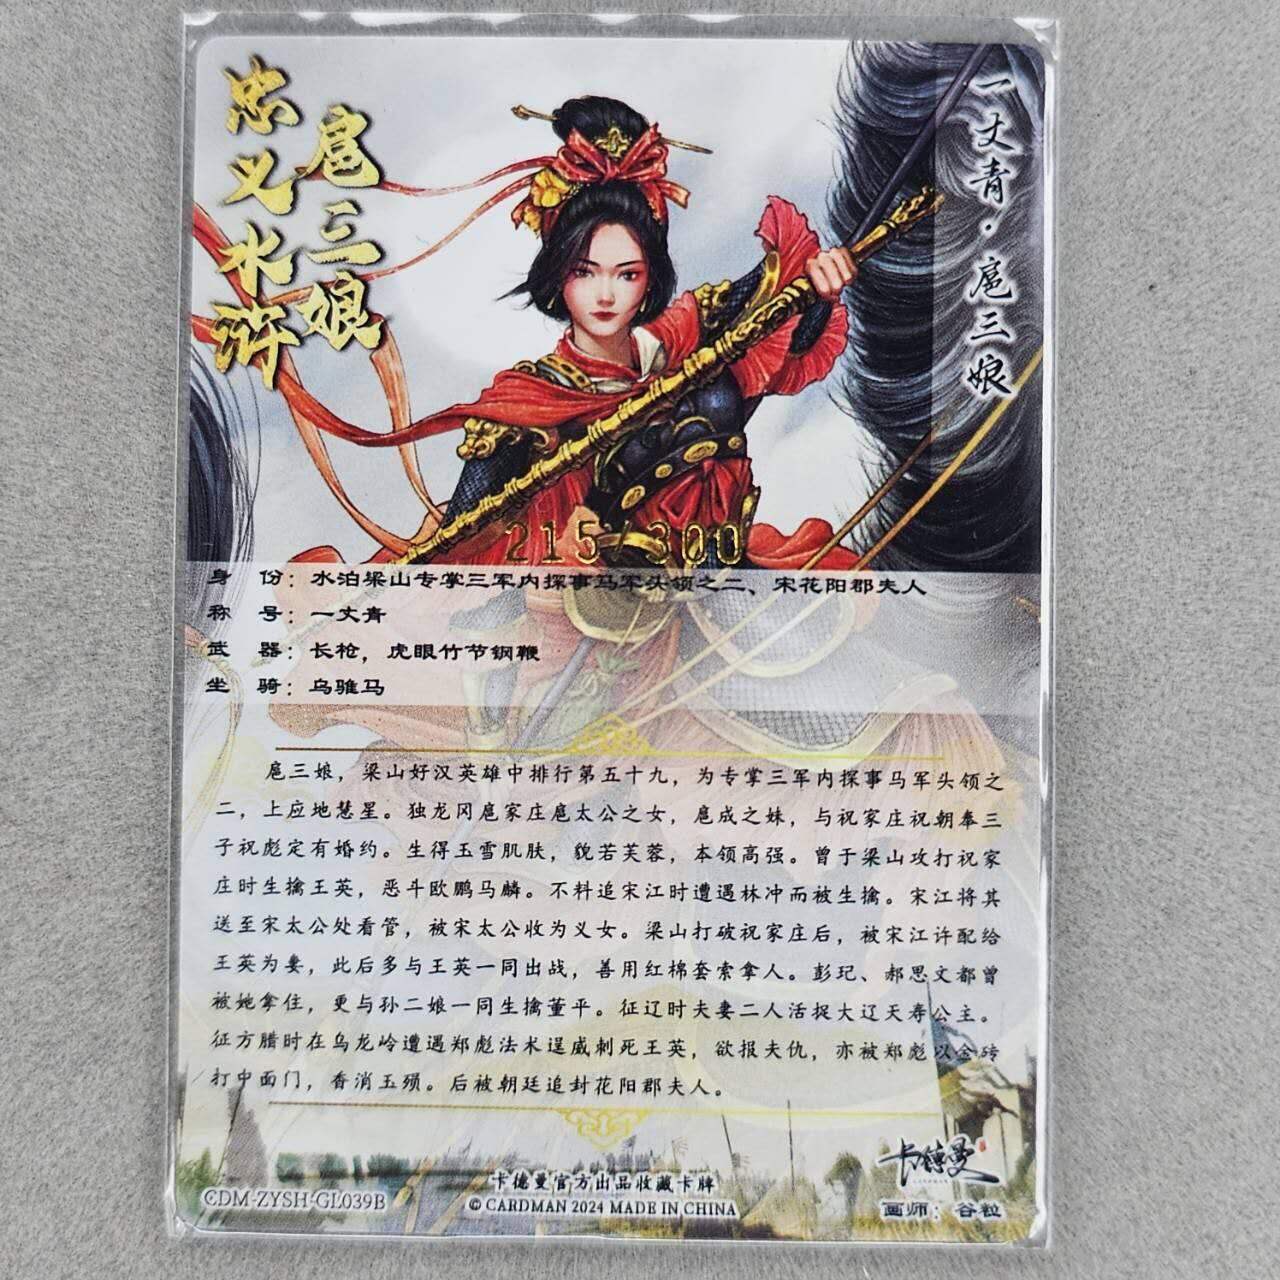 忠义水浒
扈三娘
一丈青·扈三娘
215/300
身 份：水泊梁山专掌三军内探事马军头领之二、宋花阳郡夫人
称 号：一丈青
武 器：长枪，虎眼竹节钢鞭
坐 骑：乌骓马
扈三娘，梁山好汉英雄中排行第五十九，为专掌三军内探事马军头领之
二，上应地慧星。独龙冈扈家庄扈太公之女，扈成之妹，与祝家庄祝朝奉三
子祝彪定有婚约。生得玉雪肌肤，貌若芙蓉，本领高强。曾于梁山攻打祝家
庄时生擒王英，恶斗欧鹏马麟。不料追宋江时遭遇林冲而被生擒。宋江将其
送至宋太公处看管，被宋太公收为义女。梁山打破祝家庄后，被宋江许配给
王英为妻，此后多与王英一同出战，善用红棉套索拿人。彭玘、郝思文都曾
被她拿住，更与孙二娘一同生擒董平。征辽时夫妻二人活捉大辽天寿公主。
征方腊时在乌龙岭遭遇郑彪法术逞威刺死王英，欲报夫仇，亦被郑彪以金砖
打中面门，香消玉殒。后被朝廷追封花阳郡夫人。
卡德曼
CDM-ZYSH-GL039B
卡德曼官方出品收藏卡牌
© CARDMAN 2024 MADE IN CHINA
画师：谷粒